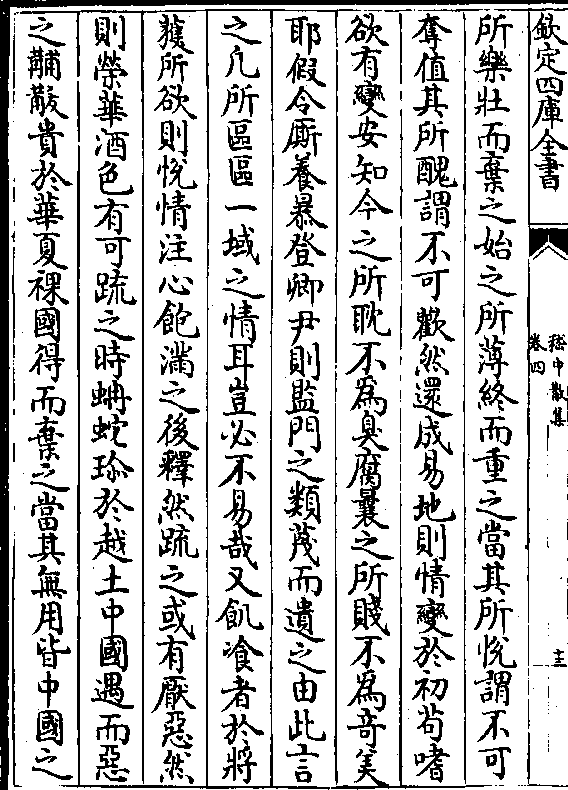 欽定四庫全書
嵇中散集
卷四
十三
所樂壯而棄之始之所薄終而重之當其所悅謂不可
奪值其所醜謂不可歡然還成易地則情變於初苟嗜
欲有變安知今之所耽不為臭腐曩之所賤不為竒美
耶假令厮養暴登卿尹則監門之類蔑而遺之由此言
之凡所區區一域之情耳豈必不易哉又飢飡者於將
獲所欲則悅情注心飽滿之後釋然疏之或有厭惡然
則榮華酒色有可疏之時蚺蛇珍於越土中國遇而惡
之黼黻貴於華夏裸國得而棄之當其無用皆中國之